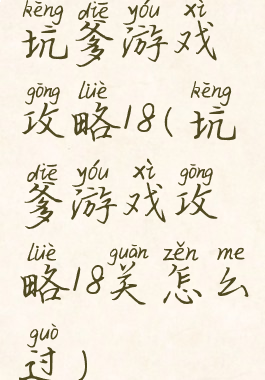 kēng diē yóu xì
坑爹游戏
gōng lüè kēng
攻略18(坑
diē yóu xì gōng
爹游戏攻
lüè guān zěn me
略18关怎么
guò
过)